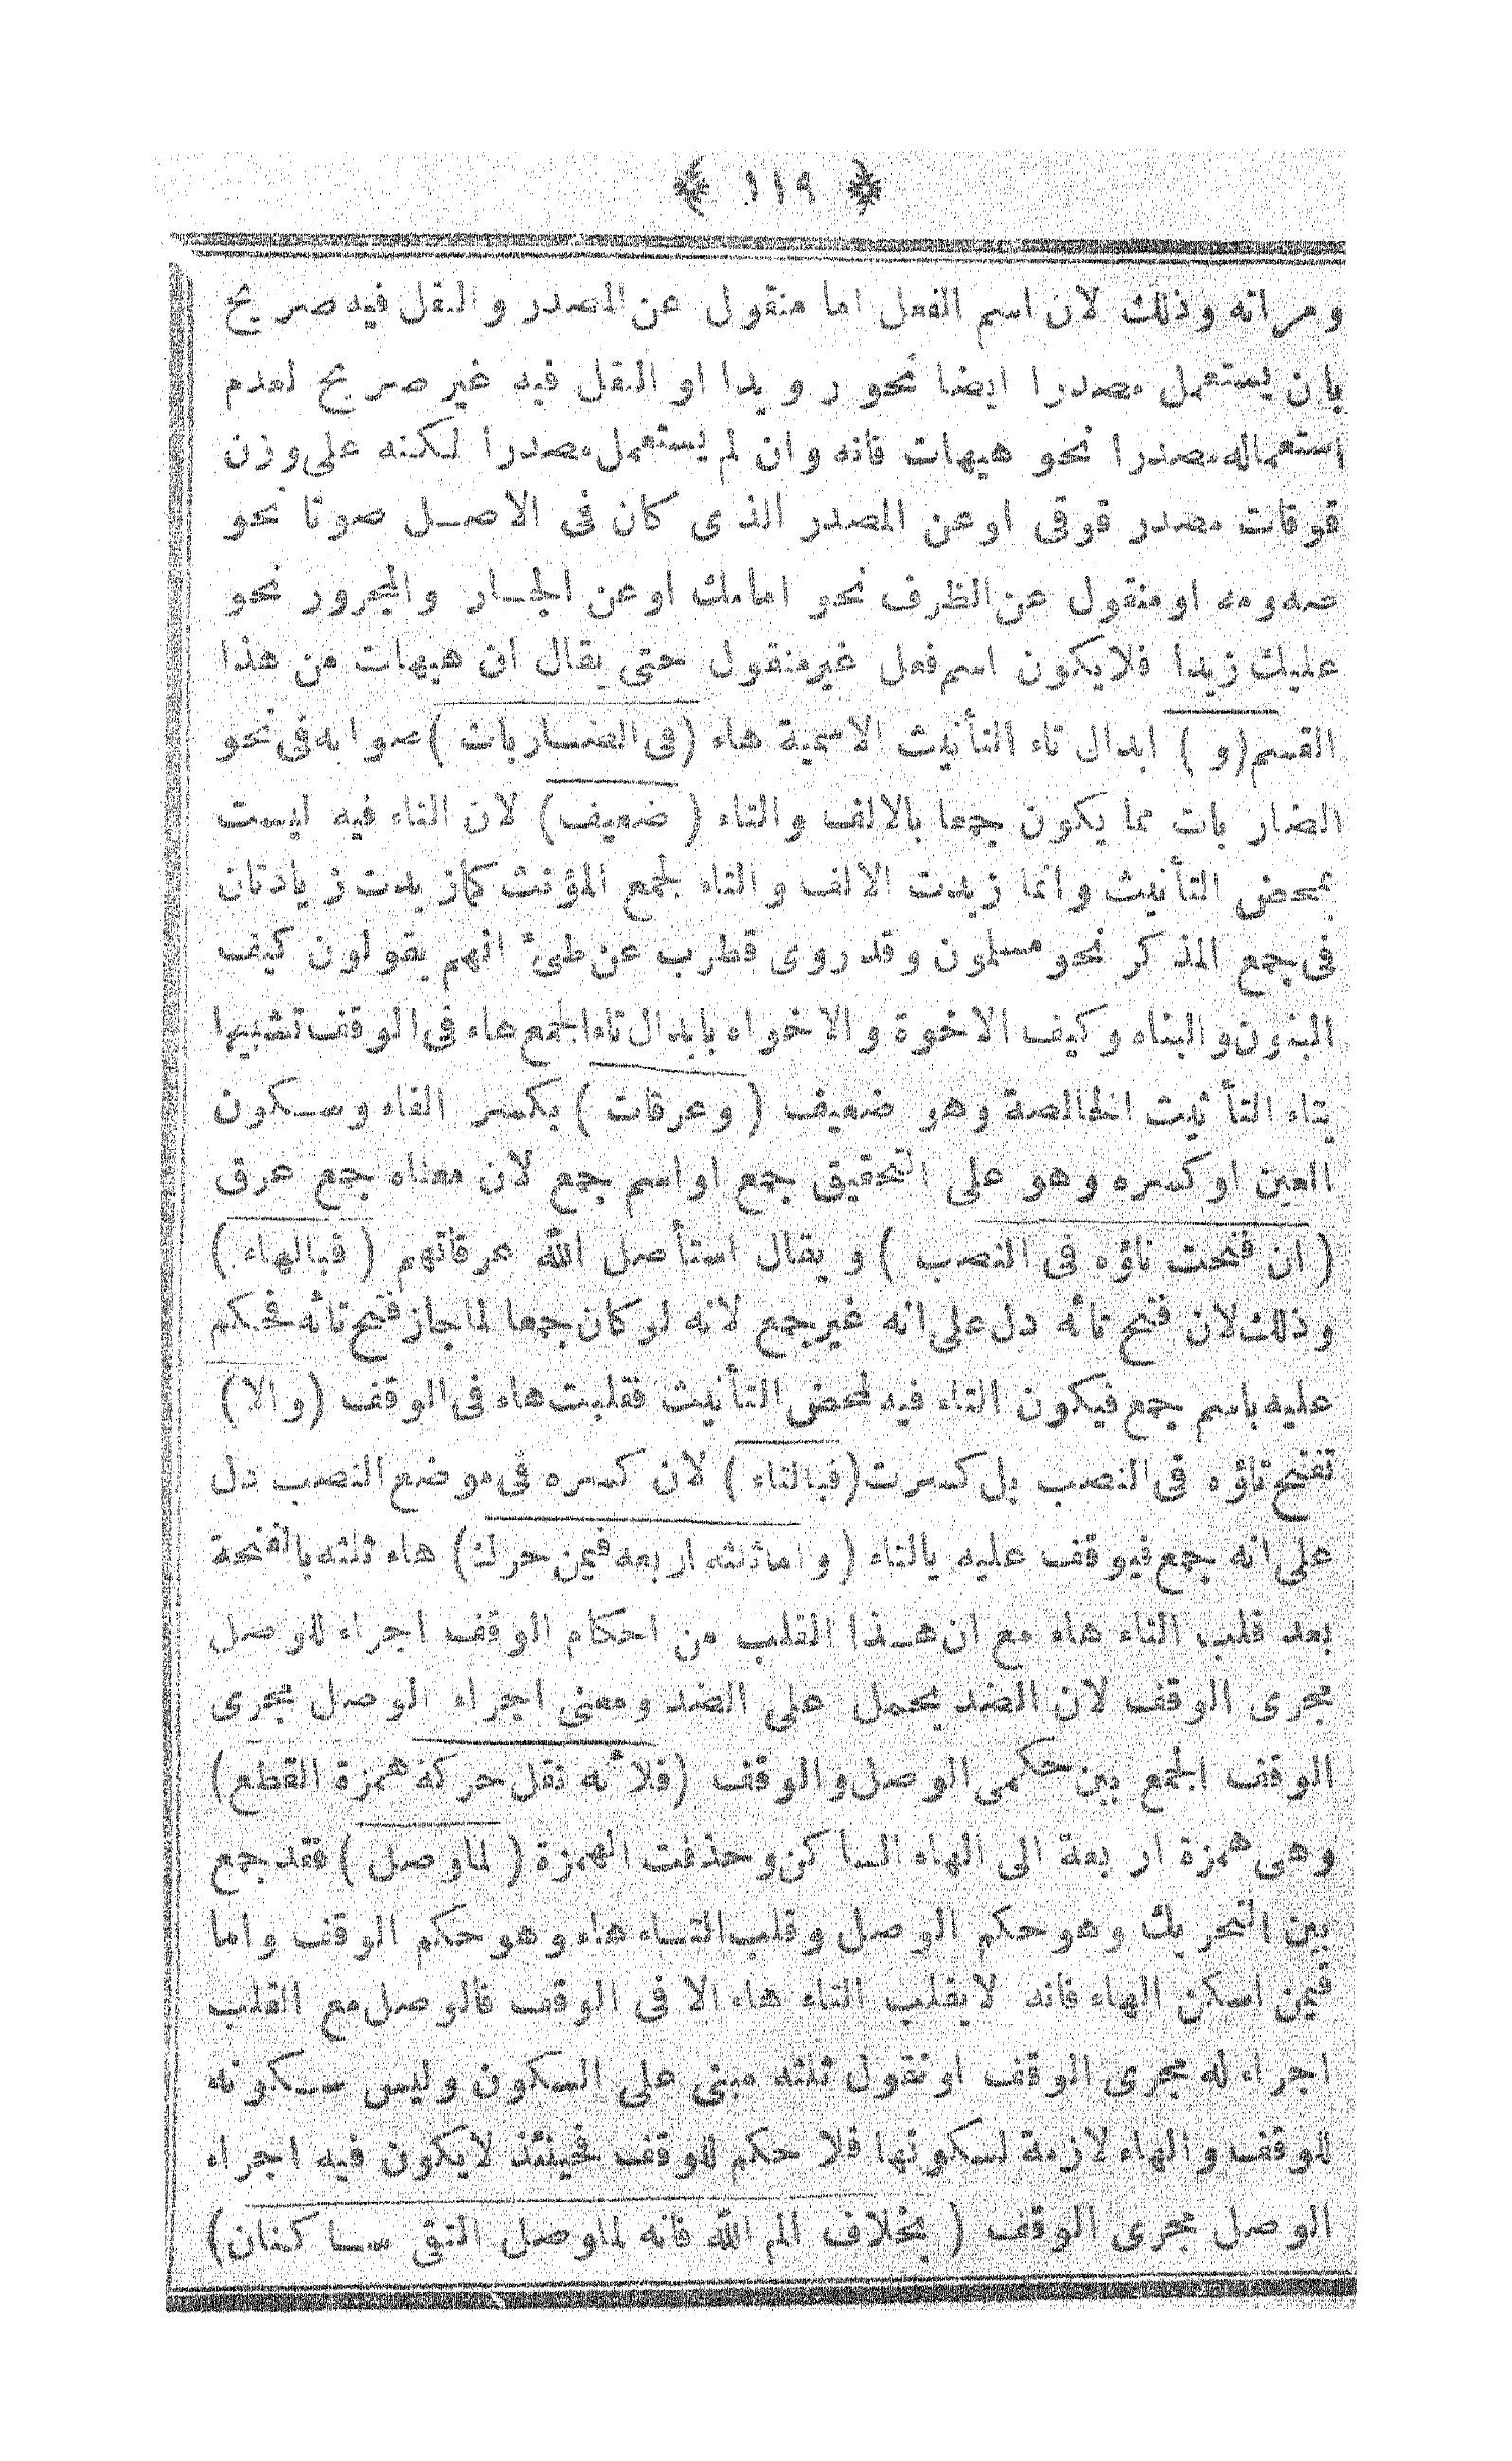 ﴿ ١١٩ ﴾
ومراته وذلك لان اسم الفعل اما منقول عن المصدر والنقل فيه صريح
بان يستعمل مصدرا ايضا نحو رويدا او النقل فيه غير صريح لعدم
استعماله مصدرا نحو هيهات فانه وان لم يستعمل مصدرا لكنه على وزن
قوقات مصدر قوقى او عن المصدر الذى كان فى الاصل صوتا نحو
صه ومه او منقول عن الظرف نحو امامك او عن الجار والمجرور نحو
عليك زيدا فلا يكون اسم فعل غير منقول حتى يقال ان هيهات من هذا
القسم (و) ابدال تاء التأنيث الاسمية هاء (فى الضاربات) صوابه فى نحو
الضاربات مما يكون جمعا بالالف والتاء (ضعيف) لان التاء فيه ليست
بمحض التأنيث وانما زيدت الالف والتاء لجمع المؤنث كما زيدت زيادتان
فى جمع المذكر نحو مسلمون وقد روى قطرب عن طئ انهم يقولون كيف
البنون والبناه وكيف الاخوة والاخواه بابدال تاء الجمع هاء فى الوقف تشبيها
بتاء التأنيث الخالصة وهو ضعيف (وعرقات) بكسر الفاء وسكون
العين او كسره وهو على التحقيق جمع او اسم جمع لان معناه جمع عرق
(ان فتحت تاؤه فى النصب) ويقال استأصل الله عرقاتهم (فبالهاء)
وذلك لان فتح تائه دل على انه غير جمع لانه لو كان جمعا لما جاز فتح تائه فحكم
عليه باسم جمع فيكون التاء فيه لمحض التأنيث فقلبت هاء فى الوقف (والا)
تفتح تاؤه فى النصب بل كسرت (فبالتاء) لان كسره فى موضع النصب دل
على انه جمع فيوقف عليه بالتاء (واما ثلثه اربعه فيمن حرك) هاء ثلثه بالفتحة
بعد قلب التاء هاء مع ان هذا القلب من احكام الوقف اجراء للوصل
مجرى الوقف لان الضد يحمل على الضد ومعنى اجراء الوصل مجرى
الوقف الجمع بين حكمى الوصل والوقف (فلأنه نقل حركة همزة القطع)
وهى همزة اربعة الى الهاء الساكن وحذفت الهمزة (لما وصل) فقد جمع
بين التحريك وهو حكم الوصل وقلب التاء هاء وهو حكم الوقف واما
فيمن اسكن الهاء فانه لا يقلب التاء هاء الا فى الوقف فالوصل مع القلب
اجراء له مجرى الوقف او نقول ثلثه مبنى على السكون وليس سكونه
للوقف والهاء لازمة لسكونها فلا حكم للوقف فحينئذ لا يكون فيه اجراء
الوصل مجرى الوقف (بخلاف الم الله فانه لما وصل التقى ساكنان)